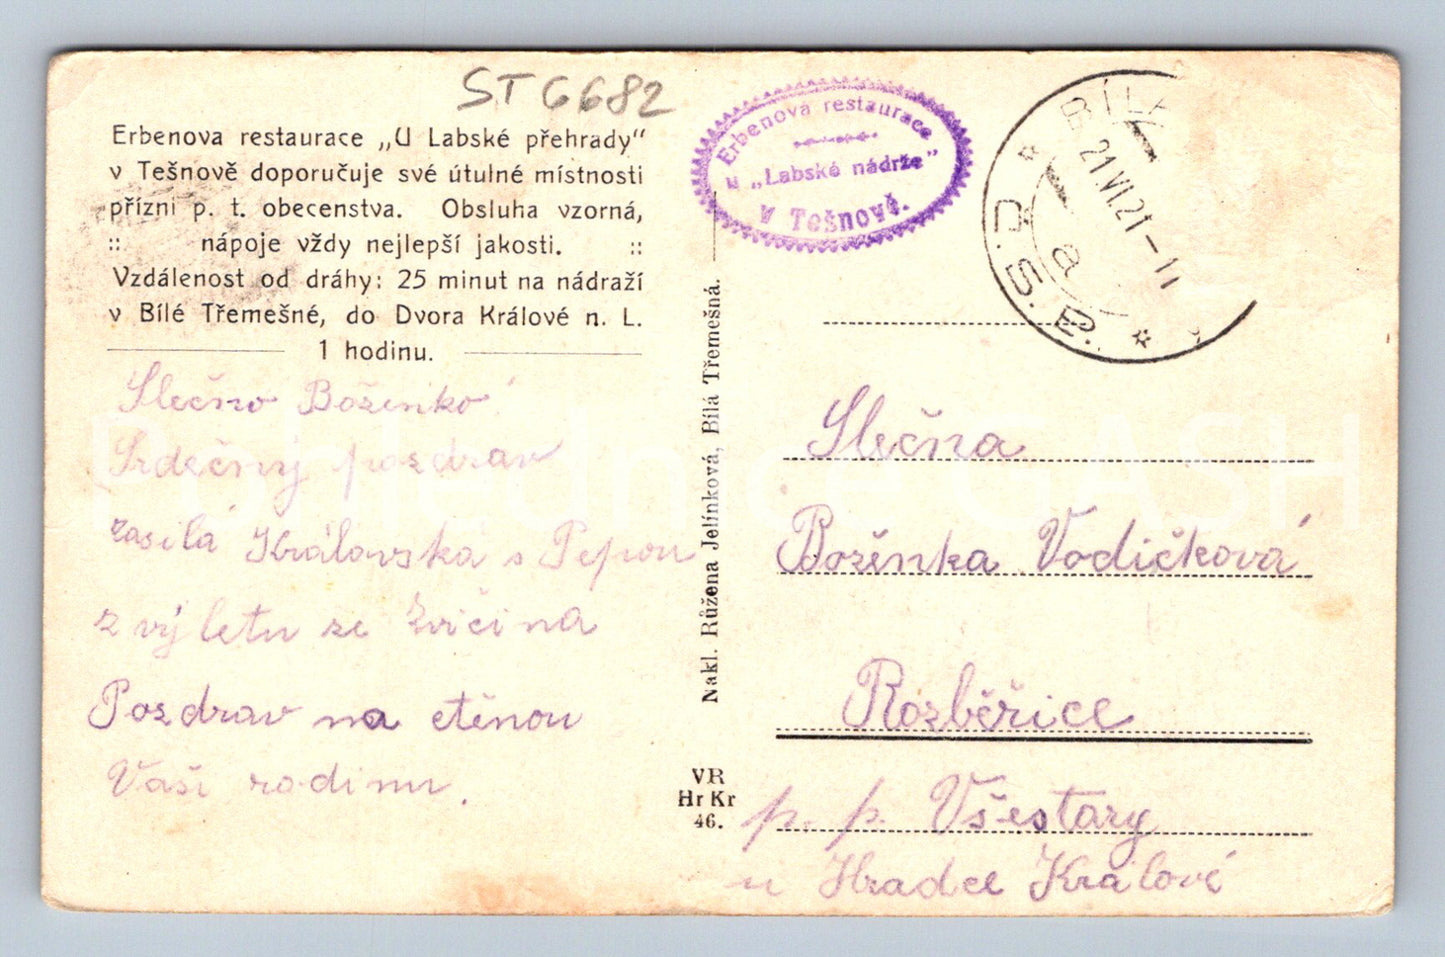 ST 6682
Erbenova restaurace „U Labské přehrady“
v Tešnově doporučuje své útulné místnosti
přízni p. t. obecenstva. Obsluha vzorná,
:: nápoje vždy nejlepší jakosti. ::
Vzdálenost od dráhy: 25 minut na nádraží
v Bílé Třemešné, do Dvora Králové n. L.
1 hodinu.
Slečno Boženko
Srdečný pozdrav
zasílá Královska s Pepou
z výletu ze Zvičina
Pozdrav na ctěnou
Vaši rodinu.
Nakl. Růžena Jelínková, Bílá Třemešná.
VR
Hr Kr
46.
Erbenova restaurace
u „Labské nádrže”
v Tešnově.
BÍLÁ
21 VI. 21 - 11
a
Slečna
Boženka Vodičková
Rozběřice
p. p. Všestary
u Hradce Králové
Pohlednice GASH